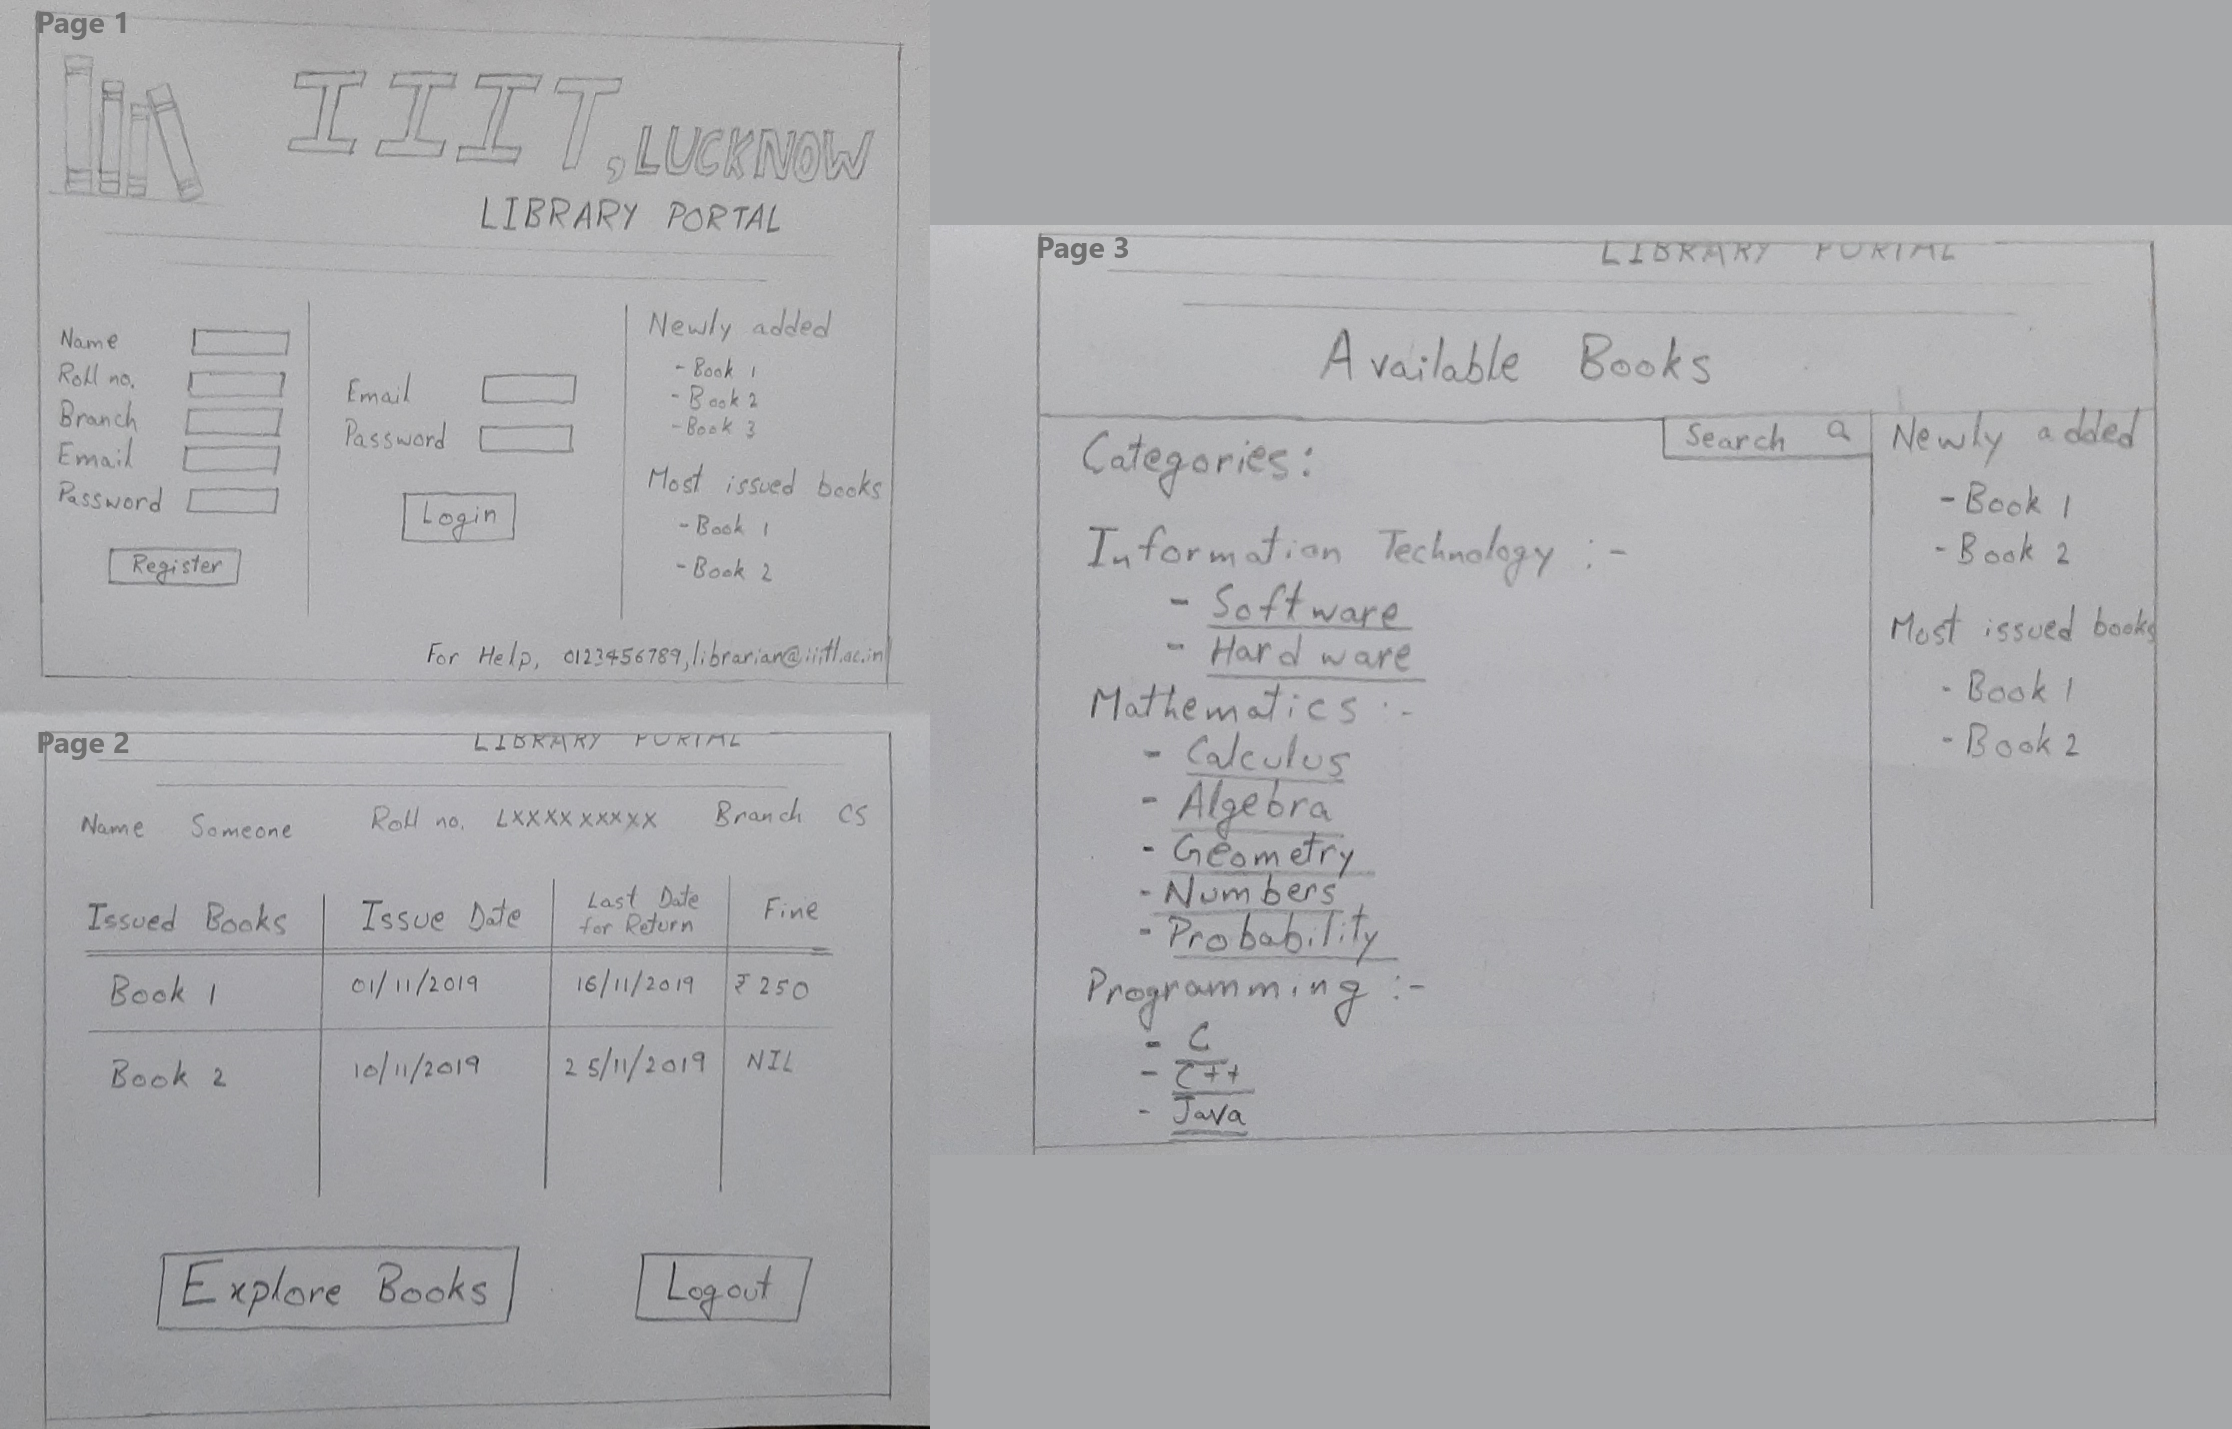 Page 1
IIIT, LUCKNOW
LIBRARY PORTAL
Name
Roll no.
Branch
Email
Password
Register
Email
Password
Login
Newly added
- Book 1
- Book 2
- Book 3
Most issued books
- Book 1
- Book 2
For Help, 0123456789, librarian@iiitl.ac.in
Page 2
LIBRARY PORTAL
Name Someone Roll no. LXXXXXXXXX Branch CS
Issued Books Issue Date Last Date for Return Fine
Book 1 01/11/2019 16/11/2019 ₹250
Book 2 10/11/2019 25/11/2019 NIL
Explore Books Logout
Page 3
LIBRARY PORTAL
Available Books
Search
Categories:
Information Technology :-
- Software
- Hardware
Mathematics :-
- Calculus
- Algebra
- Geometry
- Numbers
- Probability
Programming :-
- C
- C++
- Java
Newly added
- Book 1
- Book 2
Most issued books
- Book 1
- Book 2